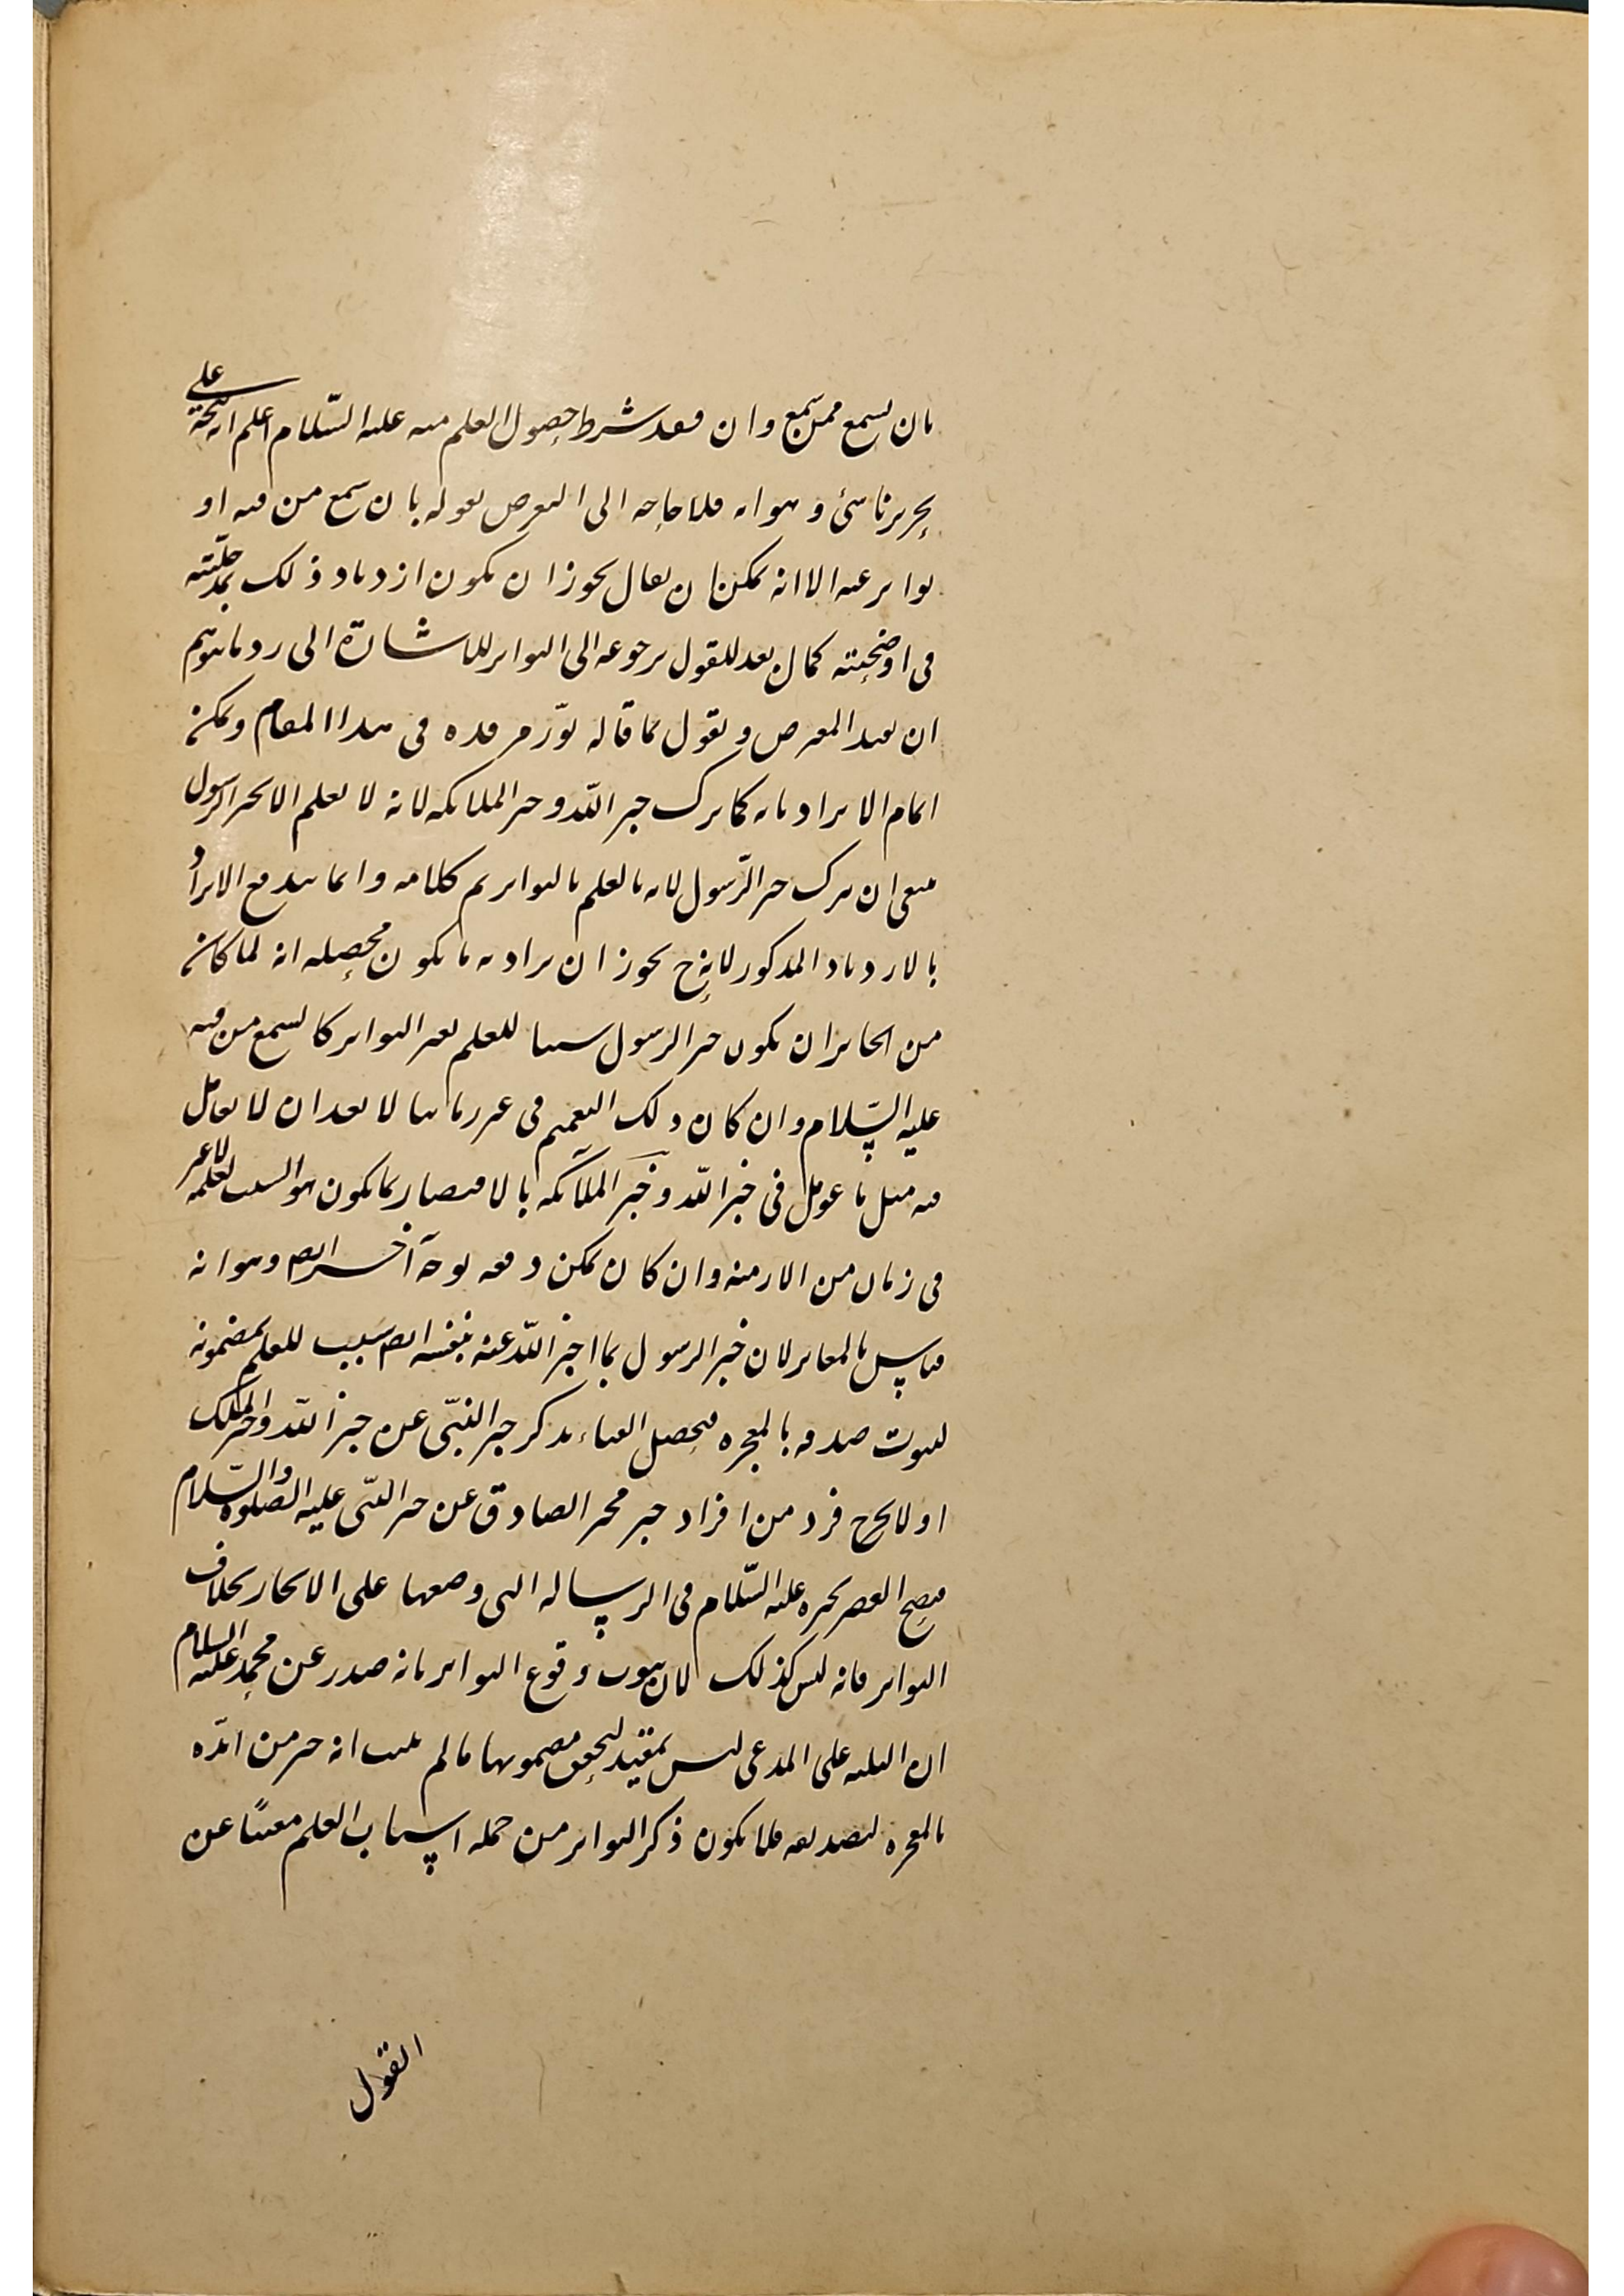 بان يسمع ممن يسمع وان فقد شرط حصول العلم منه عليه السّلام اعلم انه على
وهو انه فلا حاجة الى التعرض لقوله بان سمع من فيه او
تواتر عنه الا انه يمكن ان يقال يجوز ان يكون ازدياد ذلك
فى اوضحيته كما ان بعد للقول برجوعه الى التواتر للاشارة الى رد ما يتوهم
ان بعد المعرض ويقول كما قاله نوّر مرقده فى هذا المقام ويمكن
اتمام الايراد بانه كما ترك خبر اللّه وخبر الملائكة لانه لا يعلم الا بخبر الرسول
ينبغى ان يترك خبر الرّسول لانه بالعلم بالتواتر تم كلامه وانما يندفع الايراد
بالازدياد المذكور لانه ح يجوز ان يراد به ما يكون محصله انه لما كان
من الجايز ان يكون خبر الرسول سببا للعلم بغير التواتر كالسمع من فيه
عليه السّلام وان كان ذلك التعميم فى غير زماننا لا بعد ان لا يعامل
فيه مثل ما عومل فى خبر اللّه وخبر الملآئكة بالاقتصار بما يكون هو السبب لعلمه لا غير
فى زمان من الازمنة وان كان يمكن دفعه بوجه آخر ايض وهو انه
قياس بالمغاير لان خبر الرسول بما اخبر اللّه عنه بنفسه ايض سبب للعلم بمضمونه
لثبوت صدقه بالمعجزه فيحصل الغناء بذكر خبر النبّى عن خبر اللّه وخبر الملك
او لا يخرج فرد من افراد خبر مخبر الصادق عن خبر النبّى عليه الصلوة والسّلام
فيصح القصر بخبره عليه السّلام فى الرسالة التى وضعها على الايجاز بخلاف
التواتر فانه ليس كذلك لان ثبوت وقوع التواتر بانه صدر عن محمد عليه السلام
ان البينة على المدعى ليس بمقيد لتحقق مضمونها ما لم يثبت انه خبر من ايّده
بالمعجزه لتصديقه فلا يكون ذكر التواتر من جملة اسباب العلم مغنيًا عن
القول